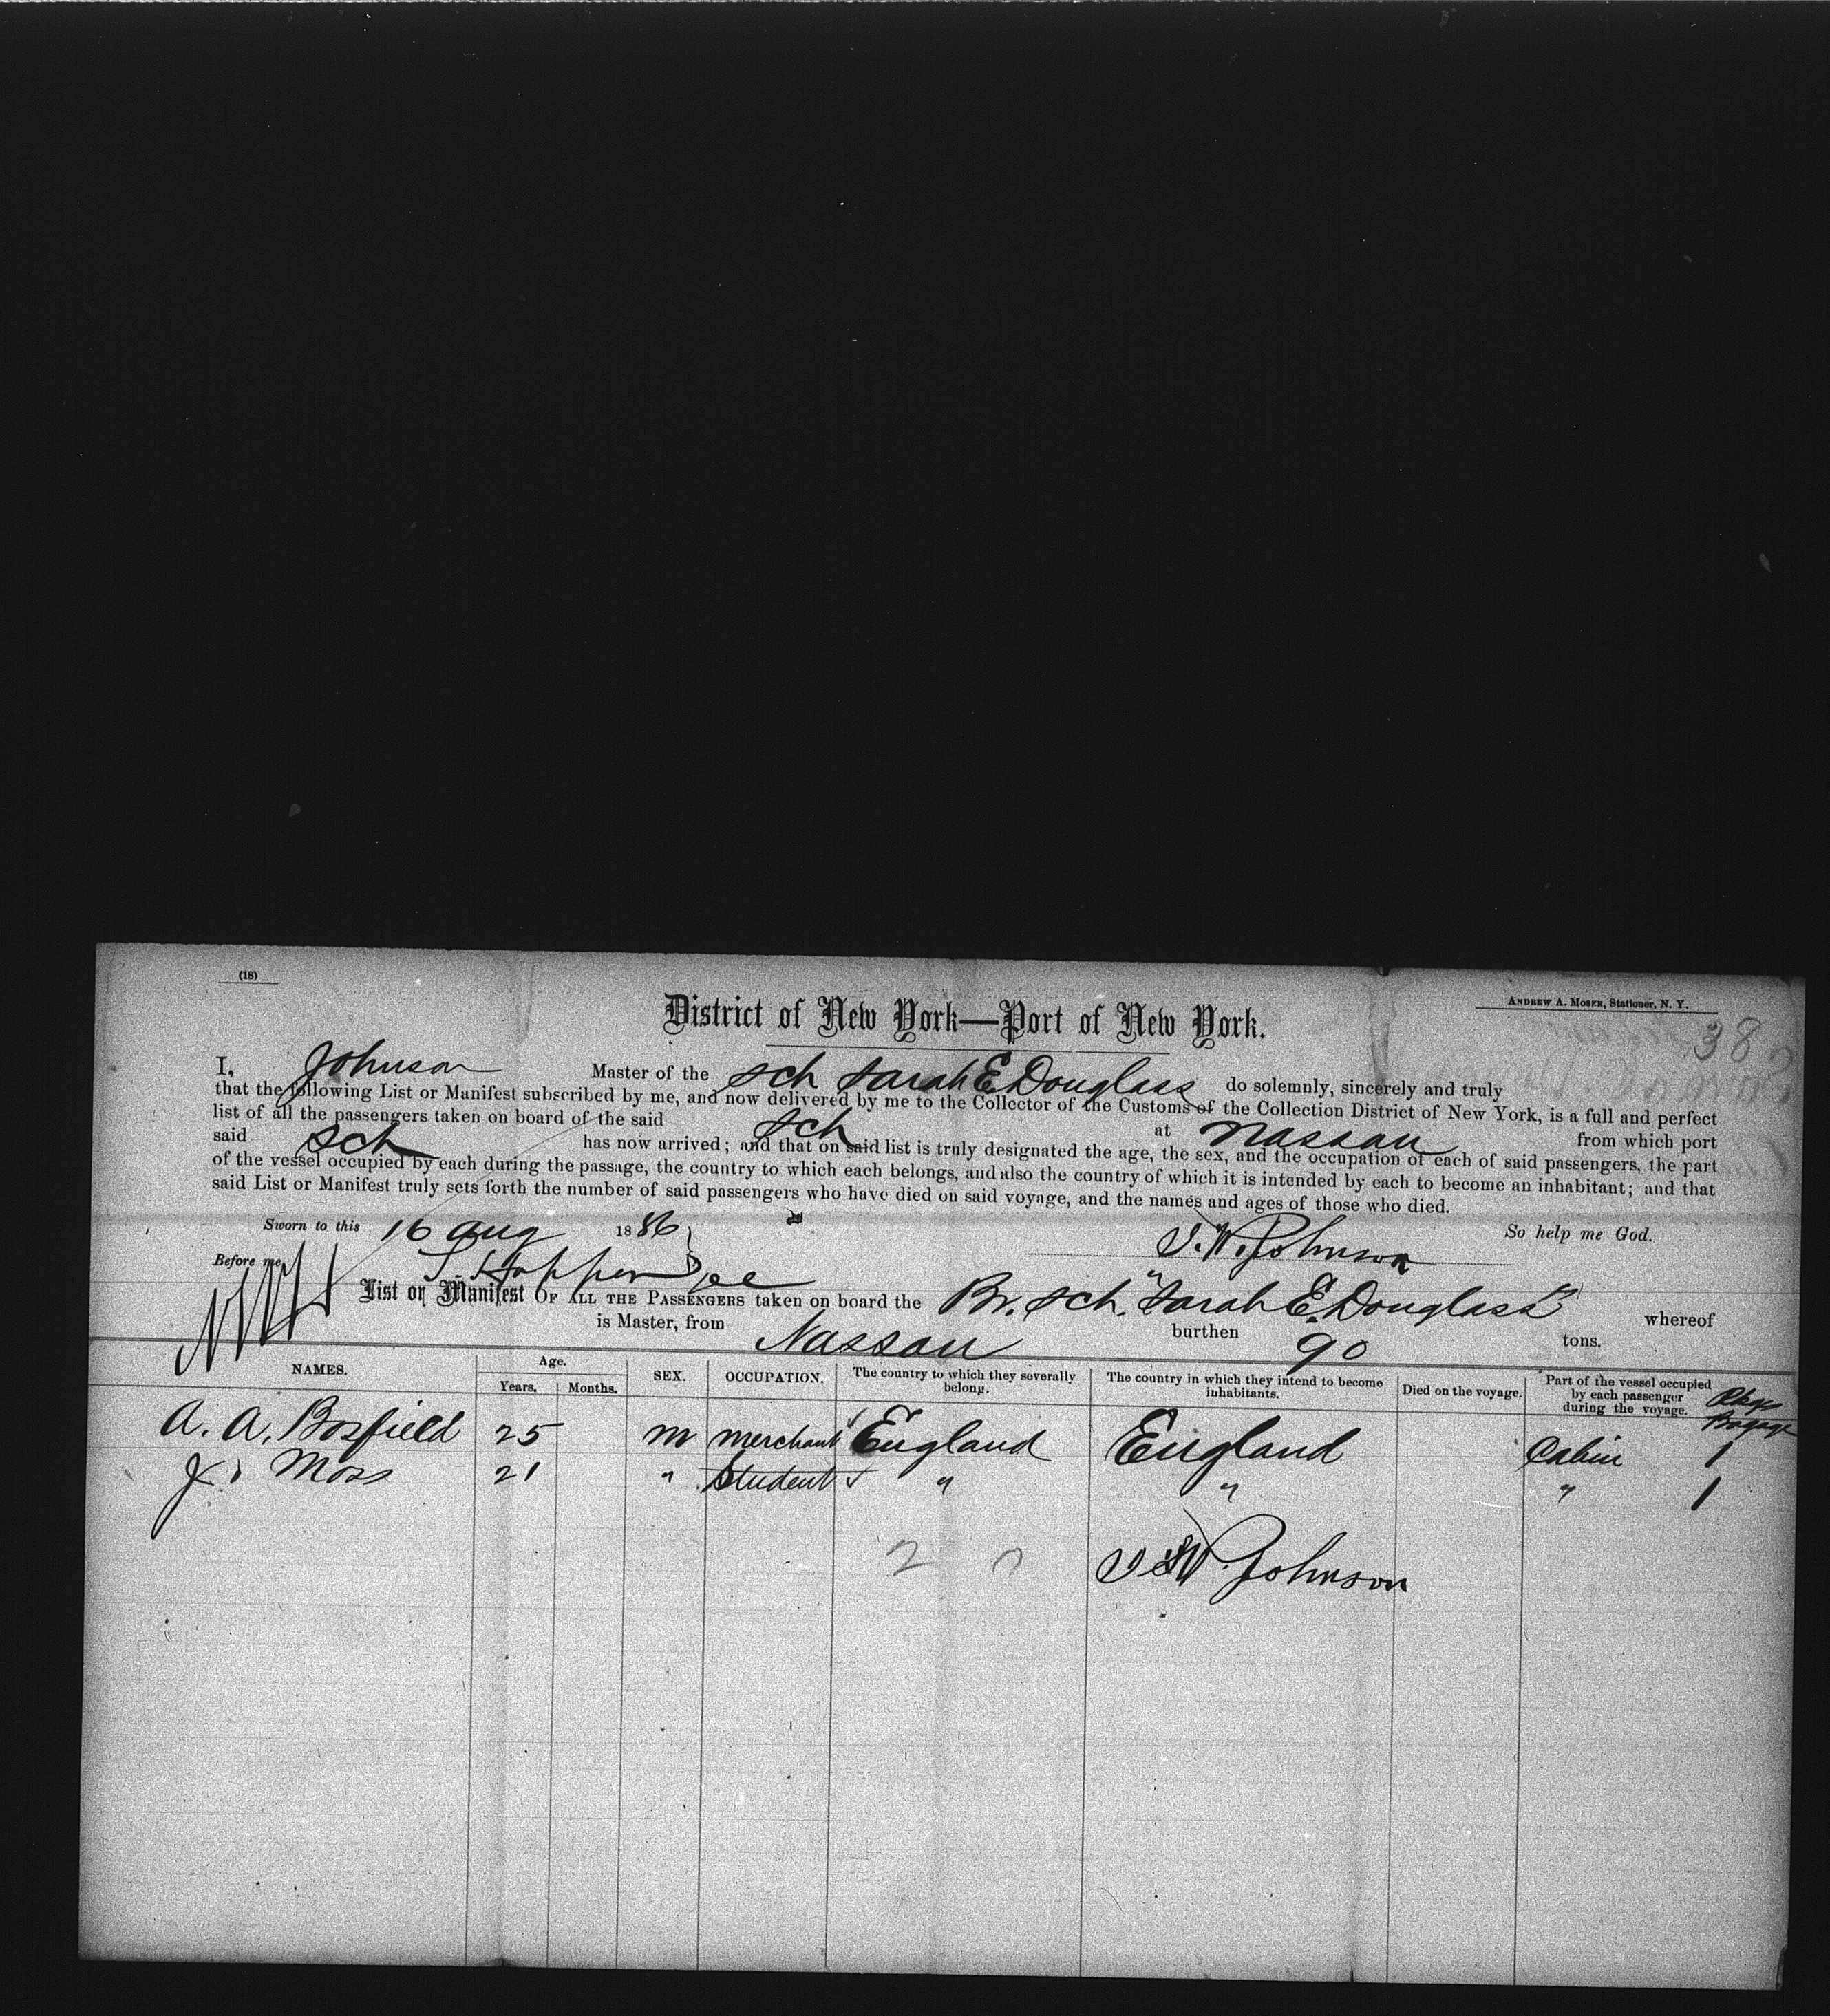 (18)
ANDREW A. MOSER, Stationer, N. Y.
38
District of New York—Port of New York.
I, Johnson Master of the Sch Sarah E Douglass do solemnly, sincerely and truly
that the following List or Manifest subscribed by me, and now delivered by me to the Collector of the Customs of the Collection District of New York, is a full and perfect
list of all the passengers taken on board of the said Sch at Nassau from which port
said Sch has now arrived; and that on said list is truly designated the age, the sex, and the occupation of each of said passengers, the part
of the vessel occupied by each during the passage, the country to which each belongs, and also the country of which it is intended by each to become an inhabitant; and that
said List or Manifest truly sets forth the number of said passengers who have died on said voyage, and the names and ages of those who died.
Sworn to this 16 Aug 1886 So help me God.
J. W. Johnson
Before me,
List or Manifest OF ALL THE PASSENGERS taken on board the Br. Sch. "Sarah E. Douglass" whereof
is Master, from Nassau burthen 90 tons.
NAMES. Age. Years. Months. SEX. OCCUPATION. The country to which they severally belong. The country in which they intend to become inhabitants. Died on the voyage. Part of the vessel occupied by each passenger during the voyage. Pkgs Bagage
A. A. Bosfield 25 M Merchant England England Cabin 1
J. Moss 21 " Student " " " 1
2 0
J W. Johnson